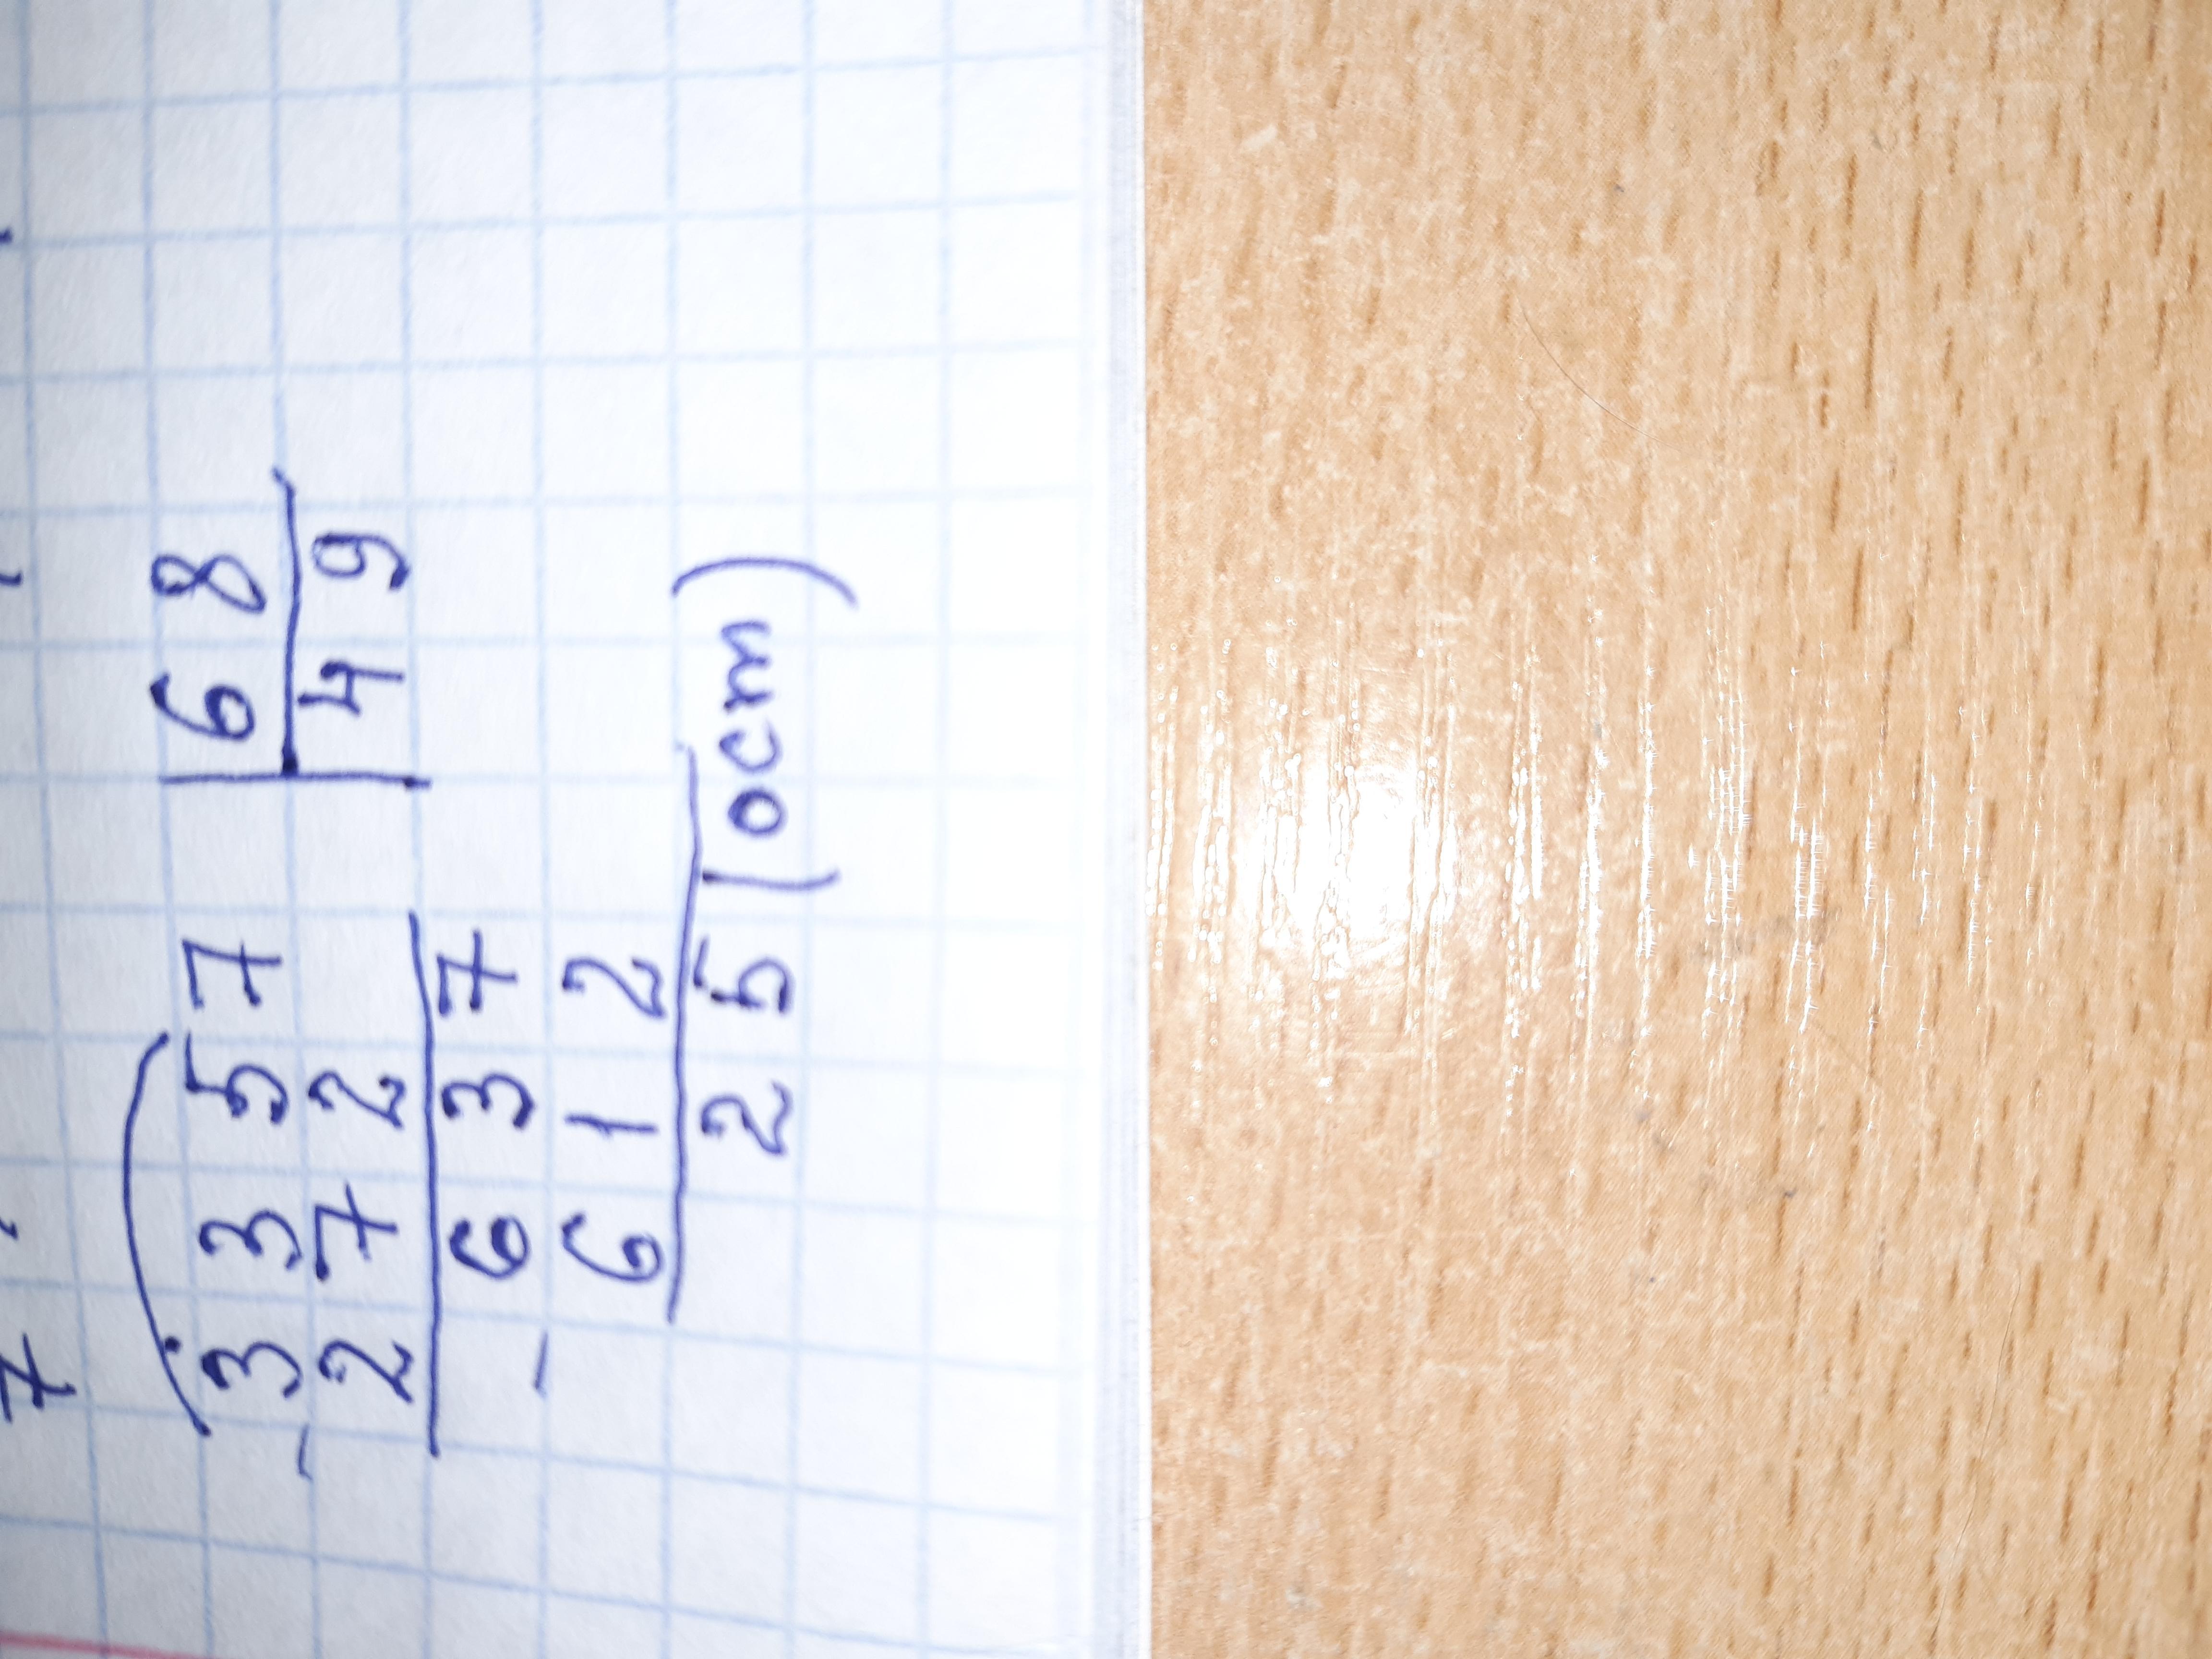 3357 | 68
- 272 | 49
637
- 612
25 (ост)